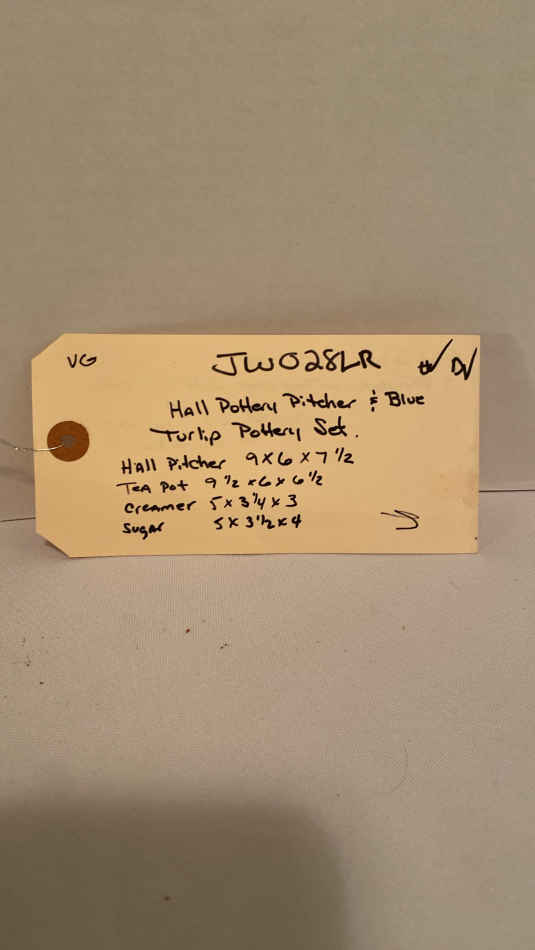 VG JW028LR
Hall Pottery Pitcher & Blue
Turlip Pottery Set.
Hall Pitcher 9 x 6 x 7 1/2
Tea Pot 9 1/2 x 6 x 6 1/2
Creamer 5 x 3 1/4 x 3
Sugar 5 x 3 1/2 x 4